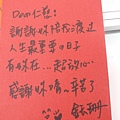 Dear 仁慈:
謝謝妳陪我渡過
人生最重要の日子
有妳在...超級放心
感謝妳唷...辛苦了